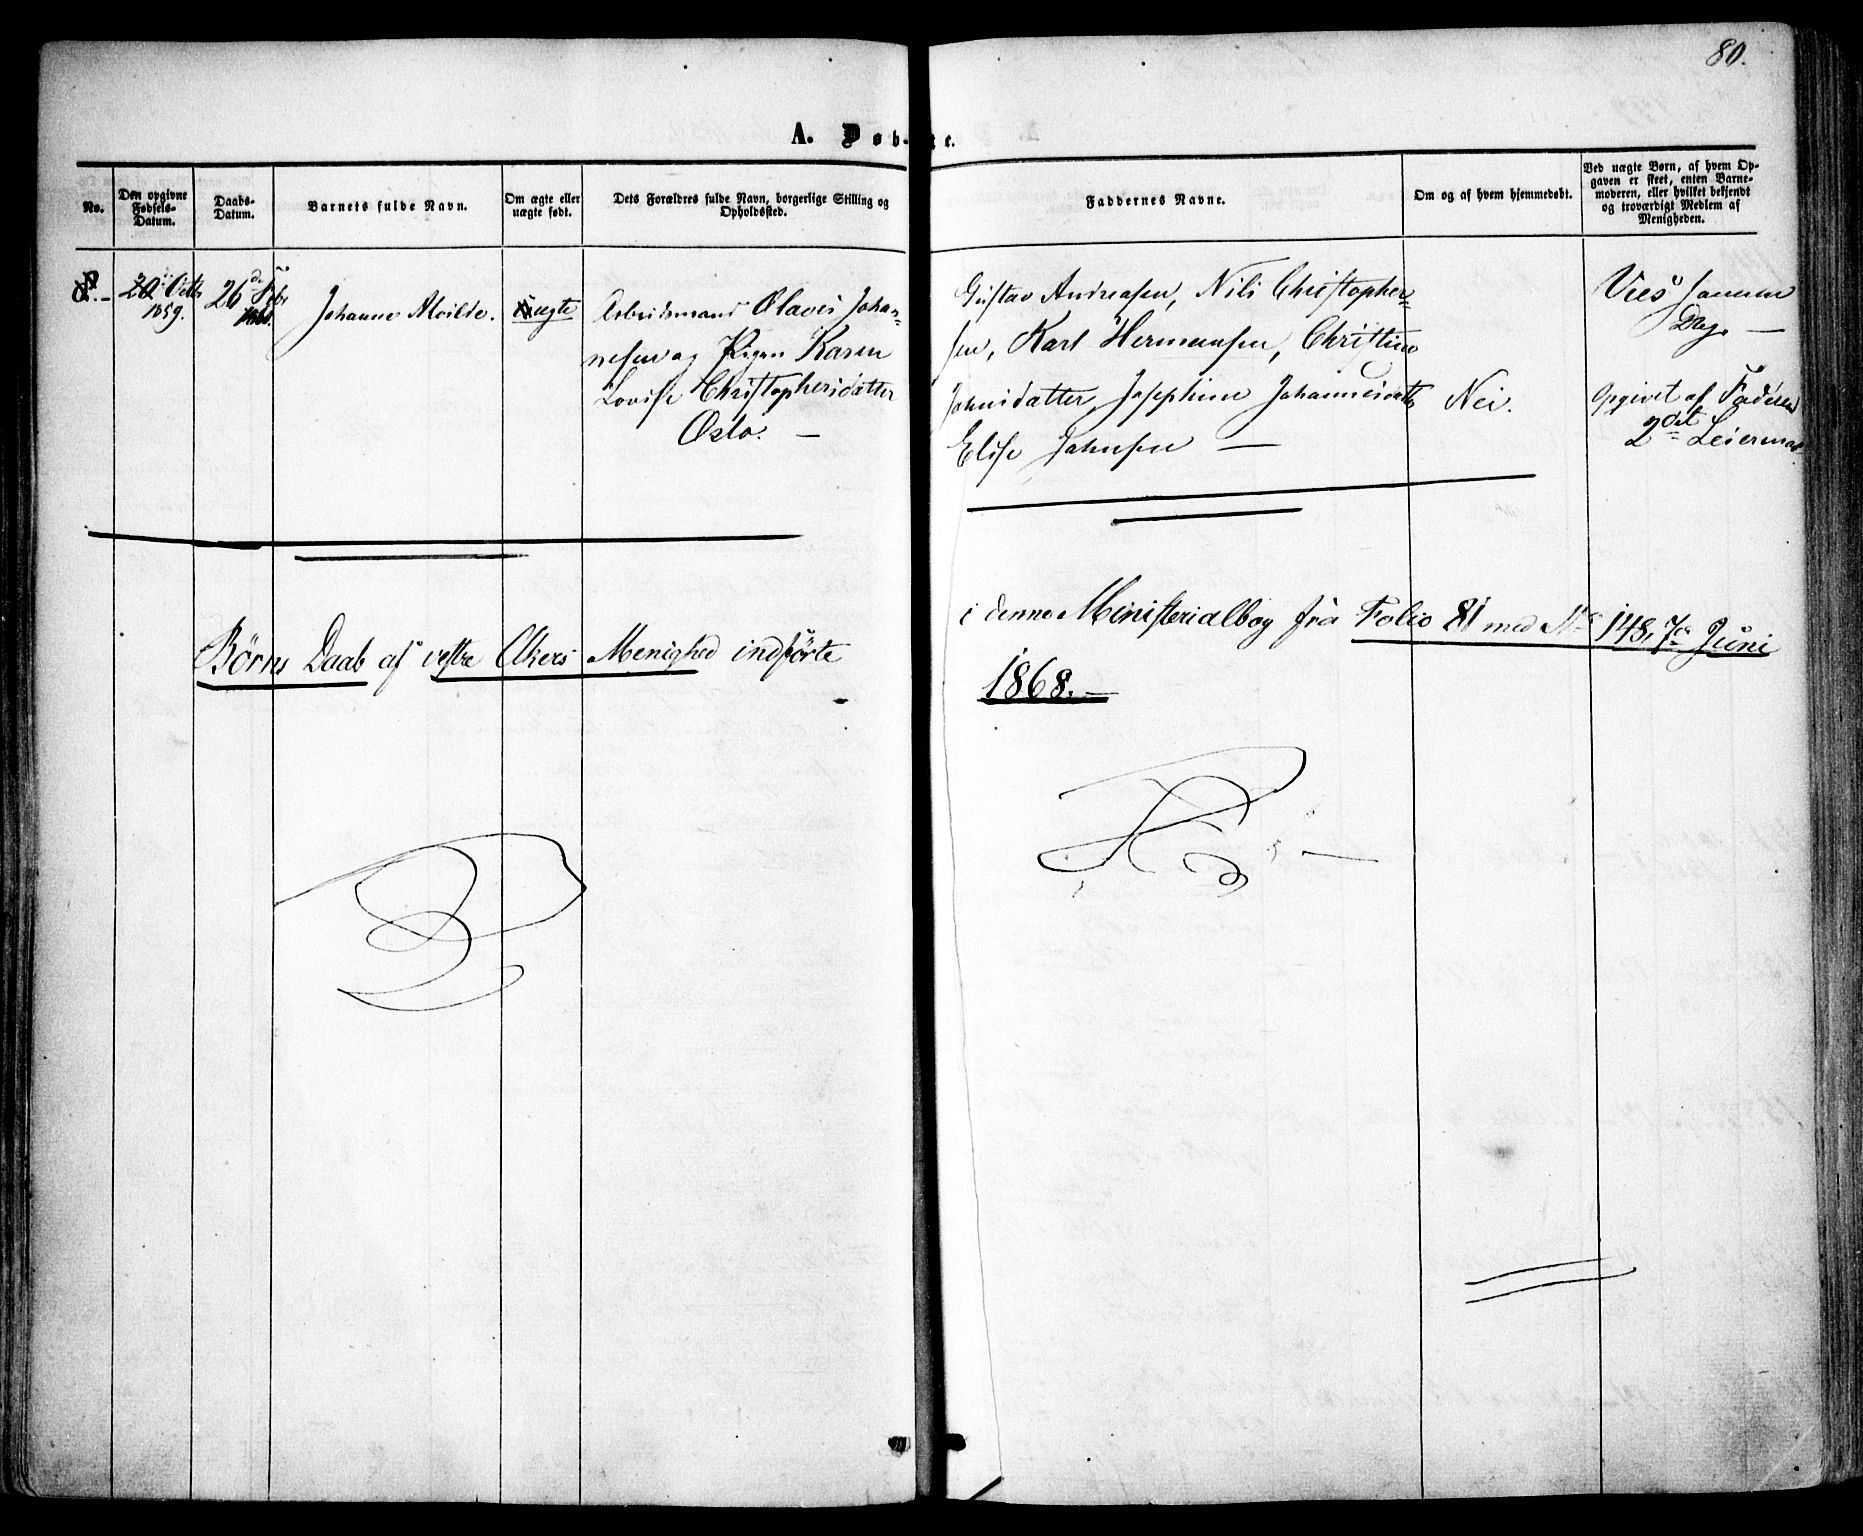 80.
A. Døb-
te.
No.
Den opgivne
Fødsels-
Datum.
Daabs-
Datum.
Barnets fulde Navn.
Om ægte eller
uægte født.
Dets Forældres fulde Navn, borgerlige Stilling og
Opholdssted.
Faddernes Navne.
Om og af hvem hjemmedøbt.
Ved uægte Børn, af hvem Op-
gaven er skeet, enten Barne-
moderen, eller hvilket bekjendt
og troværdigt Medlem af
Menigheden.
8.
1859.
26de Febr
Johanne Alvilde.
uægte
Arbeidsmand Olaves Johan-
nesen og Pigen Karen
Lovise Christophersdatter
Oslo. —
Gustav Andreasen, Nils Christopher-
sen, Karl Hermansen, Christine
Johnsdatter, Josephine Johannesdatter
Elise Johnsen —
Nei.
Viet samme
Dag. —
Opgivet af Faderen
2det Leiermaal.
Børns Daab af vestre Akers Menighed indførte
i denne Ministerialbog fra Folio 81 med No 148, 7de Juni
1868. —